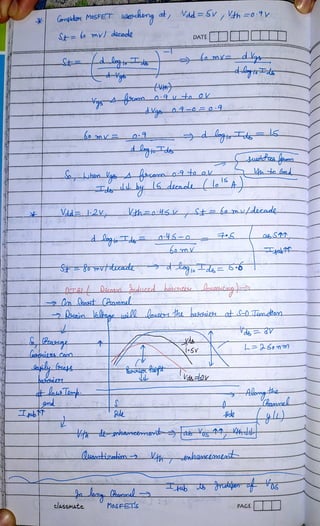 * Consider MOSFET working at, Vdd = 5V, Vth = 0.9V
St = 60 mV/ decade
DATE
St = ( d log10 Ids / d Vgs )^-1 ⇒ 60 mV = d Vgs / d log10 Ids
(Vth)
Vgs Δ from 0.9V to 0V
dVgs 0.9-0 = 0.9
60 mV = 0.9 / d log10 Ids ⇒ d log10 Ids = 15
So, when Vgs Δ from 0.9 to 0V
Ids ↓↓ by 15 decade
switches from Vth to Gnd
* Vdd = 1.2V, Vth = 0.45V, St = 60 mV/decade
d log10 Ids = 0.45-0 / 60 mV = 7.5
as St↑, Isub↑↑
St = 80 mV/decade → d log10 Ids = 5.6
DIBL ( Drain Induced barrier lowering)
→ On Short Channel
→ Drain Voltage will lower the barrier at S-D Junction
So, Charge
Carriers can
easily Cross
barrier
at low Temp.
and
Isub↑↑
Vds = 0V
L = 250nm
Vds 1.5V
Barrier height
Vds=0V
S
side
D
side
→ Along the Channel
(y/L)
Vth de-enhancement → as VDS ↑↑, Vth↓↓
Quantization → Vth, enhancement
In long Channel → Isub is Indpen of VDS
MOSFETs
classmate
PAGE